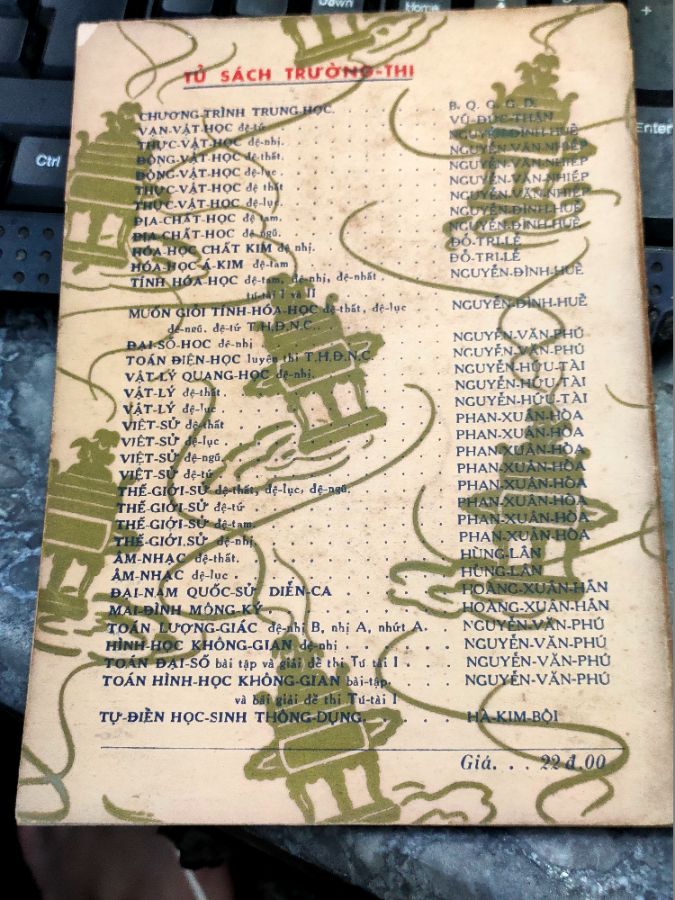 TỦ SÁCH TRƯỜNG-THI
CHƯƠNG-TRÌNH TRUNG-HỌC. . . . . B. Q. G. G. D.
VẠN-VẬT-HỌC đệ-tứ. . . . . VŨ-ĐỨC-THẬN
THỰC-VẬT-HỌC đệ-nhị. . . . . NGUYỄN-ĐÌNH-HUỀ
ĐỘNG-VẬT-HỌC đệ-thất. . . . . NGUYỄN-VĂN-NHIẾP
ĐỘNG-VẬT-HỌC đệ-lục . . . . . NGUYỄN-VĂN-NHIẾP
THỰC-VẬT-HỌC đệ thất . . . . . NGUYỄN-VĂN-NHIẾP
THỰC-VẬT-HỌC đệ-lục. . . . . NGUYỄN-VĂN-NHIẾP
ĐỊA-CHẤT-HỌC đệ-tam. . . . . NGUYỄN-ĐÌNH-HUỀ
ĐỊA CHẤT-HỌC đệ-ngũ. . . . . NGUYỄN-ĐÌNH-HUỀ
HÓA-HỌC CHẤT KIM đệ nhị. . . . . ĐỖ-TRI-LỄ
HÓA-HỌC-Á-KIM đệ-tam . . . . . ĐỖ-TRI-LỄ
TÍNH HÓA-HỌC đệ-tam, đệ-nhị, đệ-nhất . . . . . NGUYỄN-ĐÌNH-HUỀ
tú-tài I và II
MUỐN GIỎI TÍNH-HÓA-HỌC đệ-thất, đệ-lục NGUYỄN-ĐÌNH-HUỀ
đệ-ngũ, đệ-tứ T.H.Đ.N.C. . . . .
ĐẠI-SỐ-HỌC đệ-nhị . . . . . NGUYỄN-VĂN-PHÚ
TOÁN ĐIỆN-HỌC luyện thi T.H.Đ.N.C. . . . . NGUYỄN-VĂN-PHÚ
VẬT-LÝ QUANG-HỌC đệ-nhị. . . . . NGUYỄN-HỮU-TÀI
VẬT-LÝ đệ-thất . . . . . NGUYỄN-HỮU-TÀI
VẬT-LÝ đệ-lục . . . . . NGUYỄN-HỮU-TÀI
VIỆT-SỬ đệ-thất . . . . . PHAN-XUÂN-HÒA
VIỆT-SỬ đệ-lục. . . . . PHAN-XUÂN-HÒA
VIỆT-SỬ đệ-ngũ. . . . . PHAN-XUÂN-HÒA
VIỆT-SỬ đệ-tứ . . . . . PHAN-XUÂN-HÒA
THẾ-GIỚI-SỬ đệ-thất, đệ-lục, đệ-ngũ. . . . . PHAN-XUÂN-HÒA
THẾ-GIỚI-SỬ đệ-tứ . . . . . PHAN-XUÂN-HÒA
THẾ-GIỚI-SỬ đệ-tam. . . . . PHAN-XUÂN-HÒA
THẾ-GIỚI.SỬ đệ-nhị. . . . . PHAN-XUÂN-HÒA
ÂM-NHẠC đệ-thất. . . . . HÙNG-LÂN
ÂM-NHẠC đệ-lục . . . . . HÙNG-LÂN
ĐẠI-NAM QUỐC-SỬ DIỄN-CA . . . . . HOÀNG-XUÂN-HÃN
MAI-ĐÌNH MỘNG-KÝ . . . . . HOÀNG-XUÂN-HÃN
TOÁN LƯỢNG-GIÁC đệ-nhị B, nhị A, nhứt A. . . NGUYỄN-VĂN-PHÚ
HÌNH-HỌC KHÔNG-GIAN đệ-nhị . . . . . NGUYỄN-VĂN-PHÚ
TOÁN ĐẠI-SỐ bài tập và giải đề thi Tú tài I . . . . NGUYỄN-VĂN-PHÚ
TOÁN HÌNH-HỌC KHÔNG-GIAN bài-tập. . . . . NGUYỄN-VĂN-PHÚ
và bài giải đề thi Tú-tài I
TỰ-ĐIỂN HỌC-SINH THÔNG-DỤNG. . . . . . HÀ-KIM-BÔI
Giá. . . 22đ.00
Ctrl
Down
Home
Enter
+